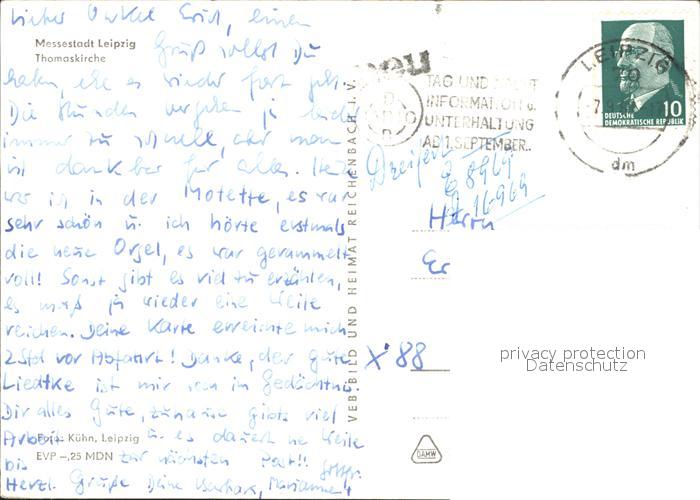 Lieber Onkel Erich, einen
Messestadt Leipzig
Thomaskirche
Gruß sollst Du
haben, ehe es wieder fort geht.
Die Stunden vergehen ja leider
immer zu schnell, aber man
ist dankbar für alles. Heute
war ich in der Motette, es war
sehr schön u. ich hörte erstmals
die neue Orgel, es war gerammelt
voll! Sonst gibt es viel zu erzählen,
es muß ja wieder eine Weile
reichen. Deine Karte erreichte mich
2 Std vor Abfahrt! Danke, der gute
Liedtke ist mir im Gedächtnis.
Dir alles Gute, zuhause gibts viel
Arbeit u. es dauert ne Weile
Foto: Kühn, Leipzig
bis zur nächsten Post!!
EVP -,25 MDN
Herzl. Grüße Deine Marianne
VEB BILD UND HEIMAT REICHENBACH I. V.
TAG UND NACHT
INFORMATION u.
UNTERHALTUNG
AB 1. SEPTEMBER..
LEIPZIG
-7.9
dm
10
DEUTSCHE
DEMOKRATISCHE REPUBLIK
8969
16969
Herrn
Er
X'88
privacy protection
Datenschutz
DAMW